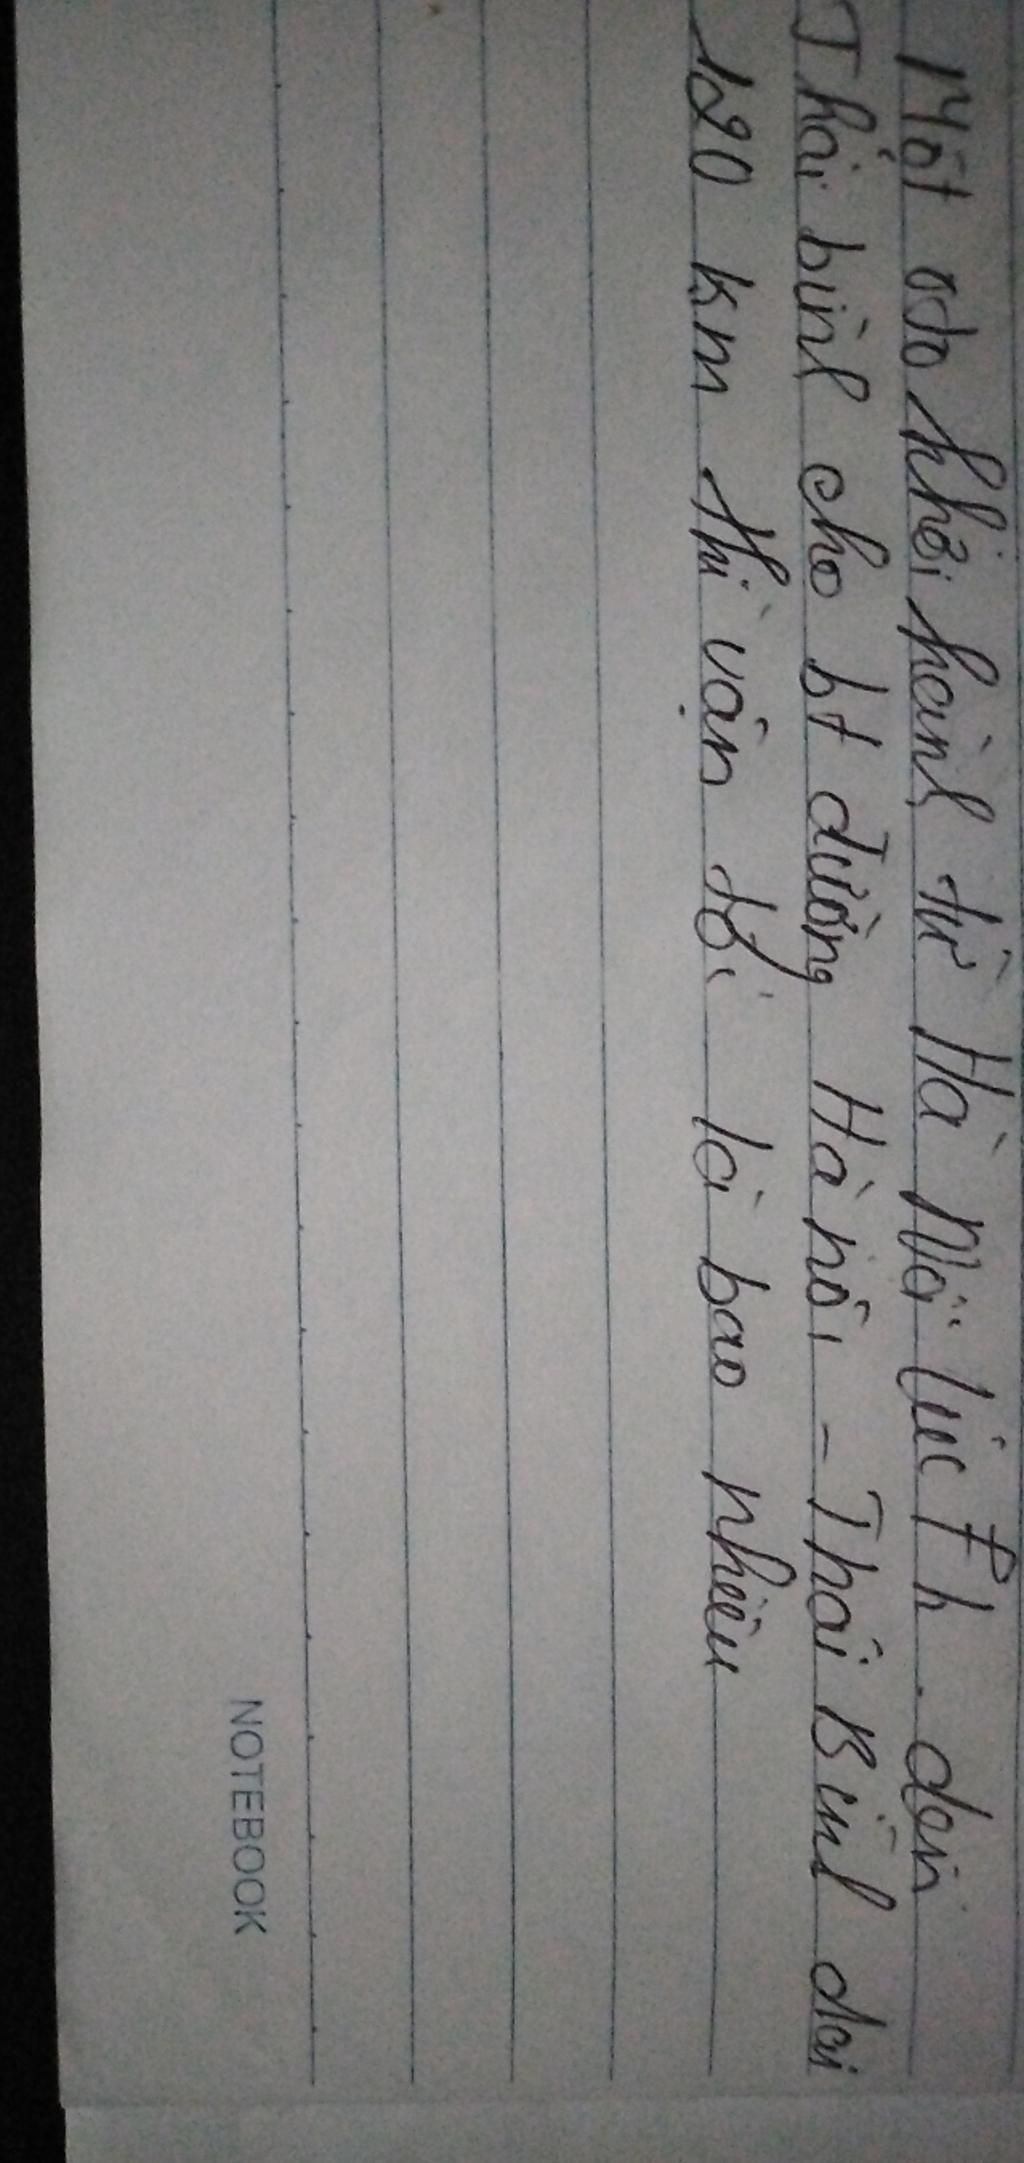 Một oto khởi hành từ Hà Nội lúc 7h. đến
Thái bình cho bt đường Hà nội - Thái Bình dài
120 km thì vận tốc là bao nhiêu
NOTEBOOK